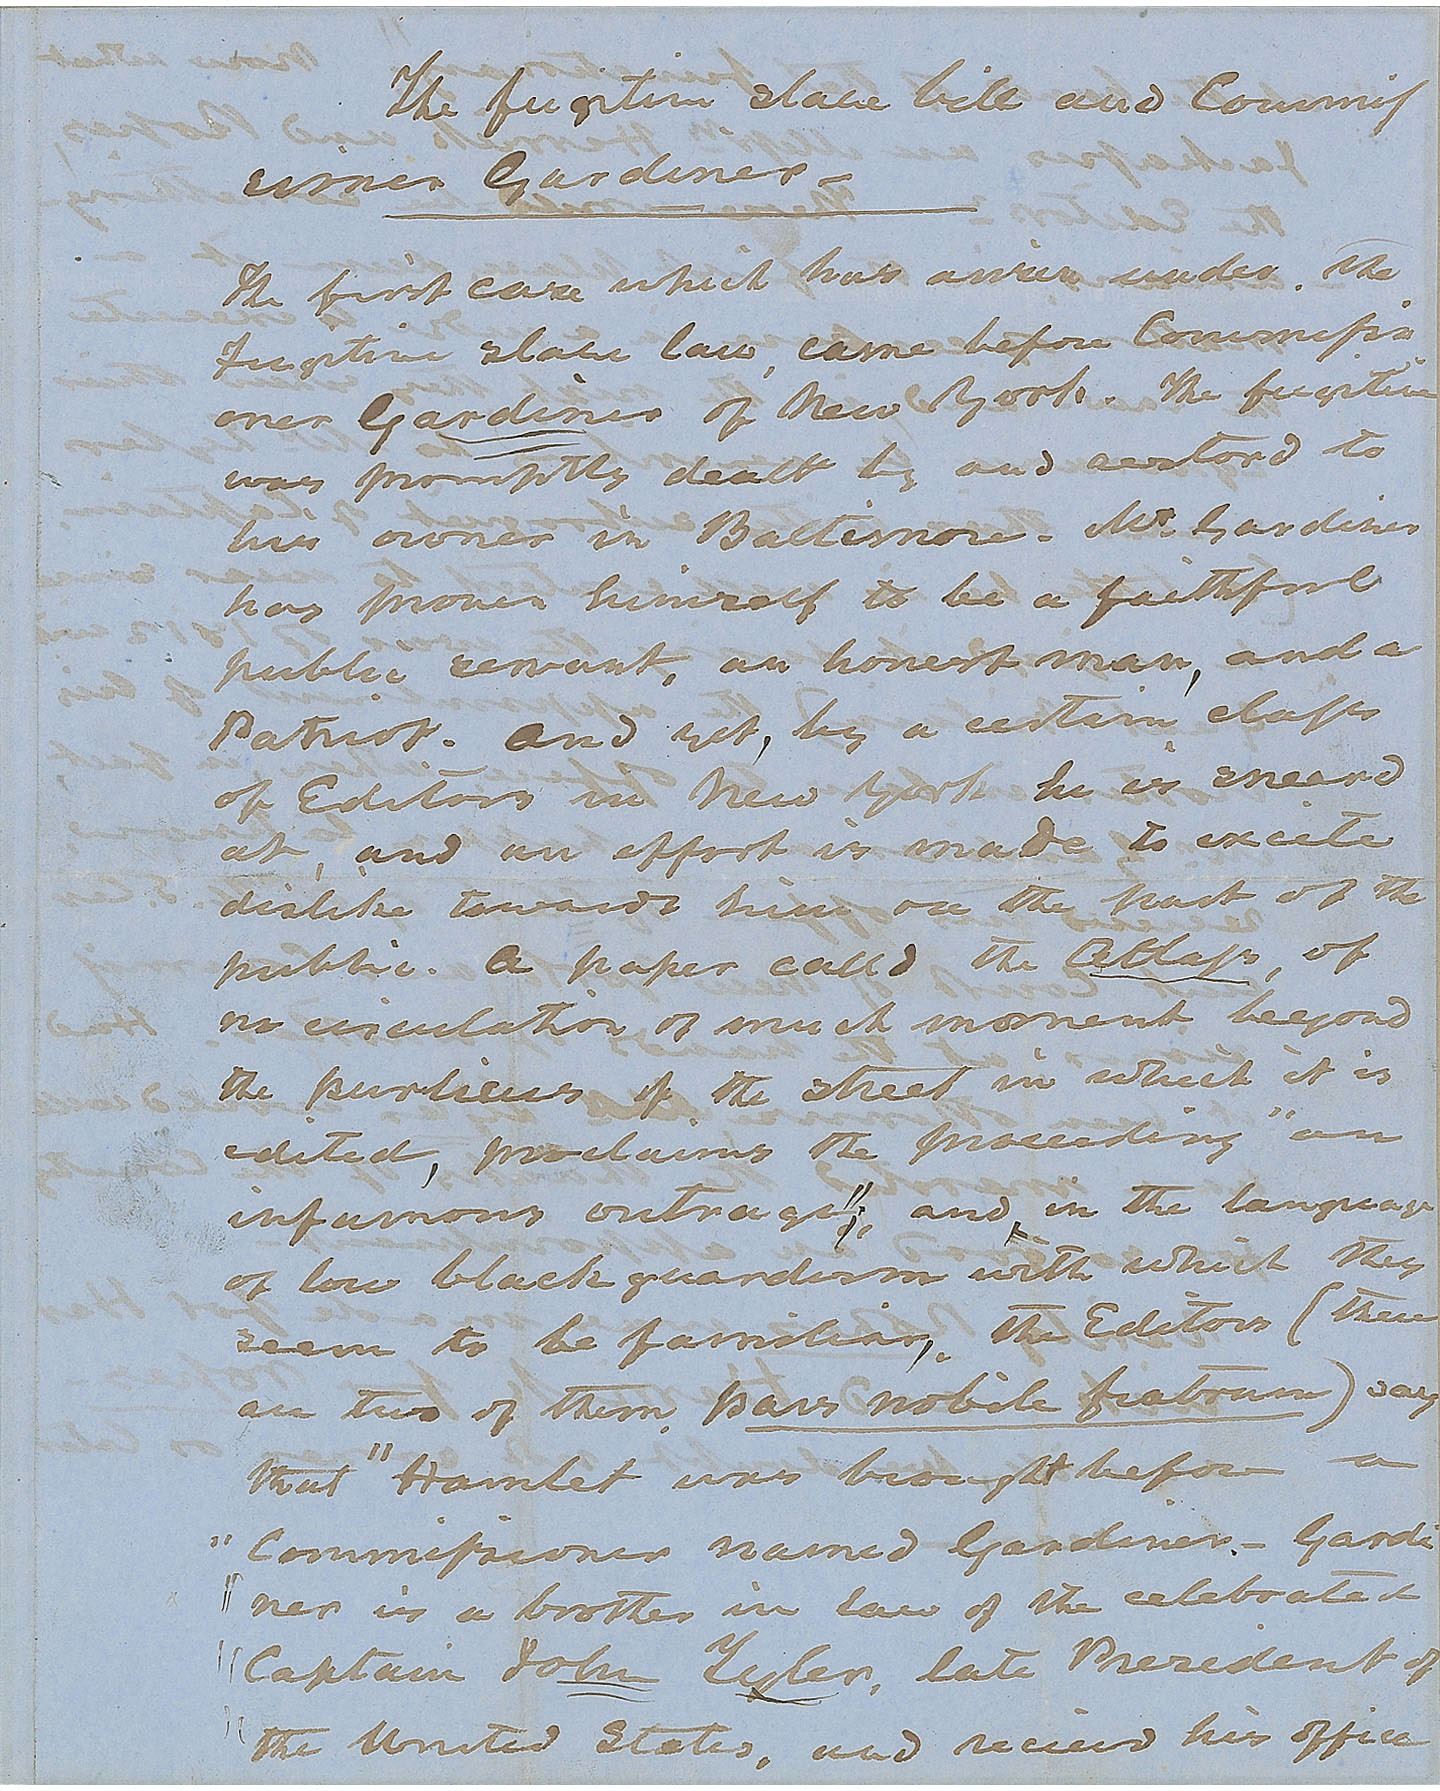 The fugitive slave bill and Commis
sioner Gardiner -
The first case which has arisen under the
fugitive slave law, came before Commissi
oner Gardiner of New York. The fugitive
was promptly dealt by and restord to
his owner in Baltimore - Mr. Gardiner
has proven himself to be a faithful
public servant, an honest man, and a
Patriot. And yet, by a certain class
of Editors in New York he is sneerd
at, and an effort is made to excite
dislike towards him on the part of the
public. A paper calld the Atlass, of
no circulation of much moment beyond
the purlieus of the street in which it is
edited, proclaims the proceeding "an
infamous outrage"; and, in the language
of low blackguardism with which they
seem to be familiar, the Editors (there
are two of them, pars nobile fratrum) say
that "Hamlet was brought before a
" Commissioner named Gardiner. - Gardi
" ner is a brother in law of the celebrated
" Captain John Tyler, late President of
" the United States, and recievd his office